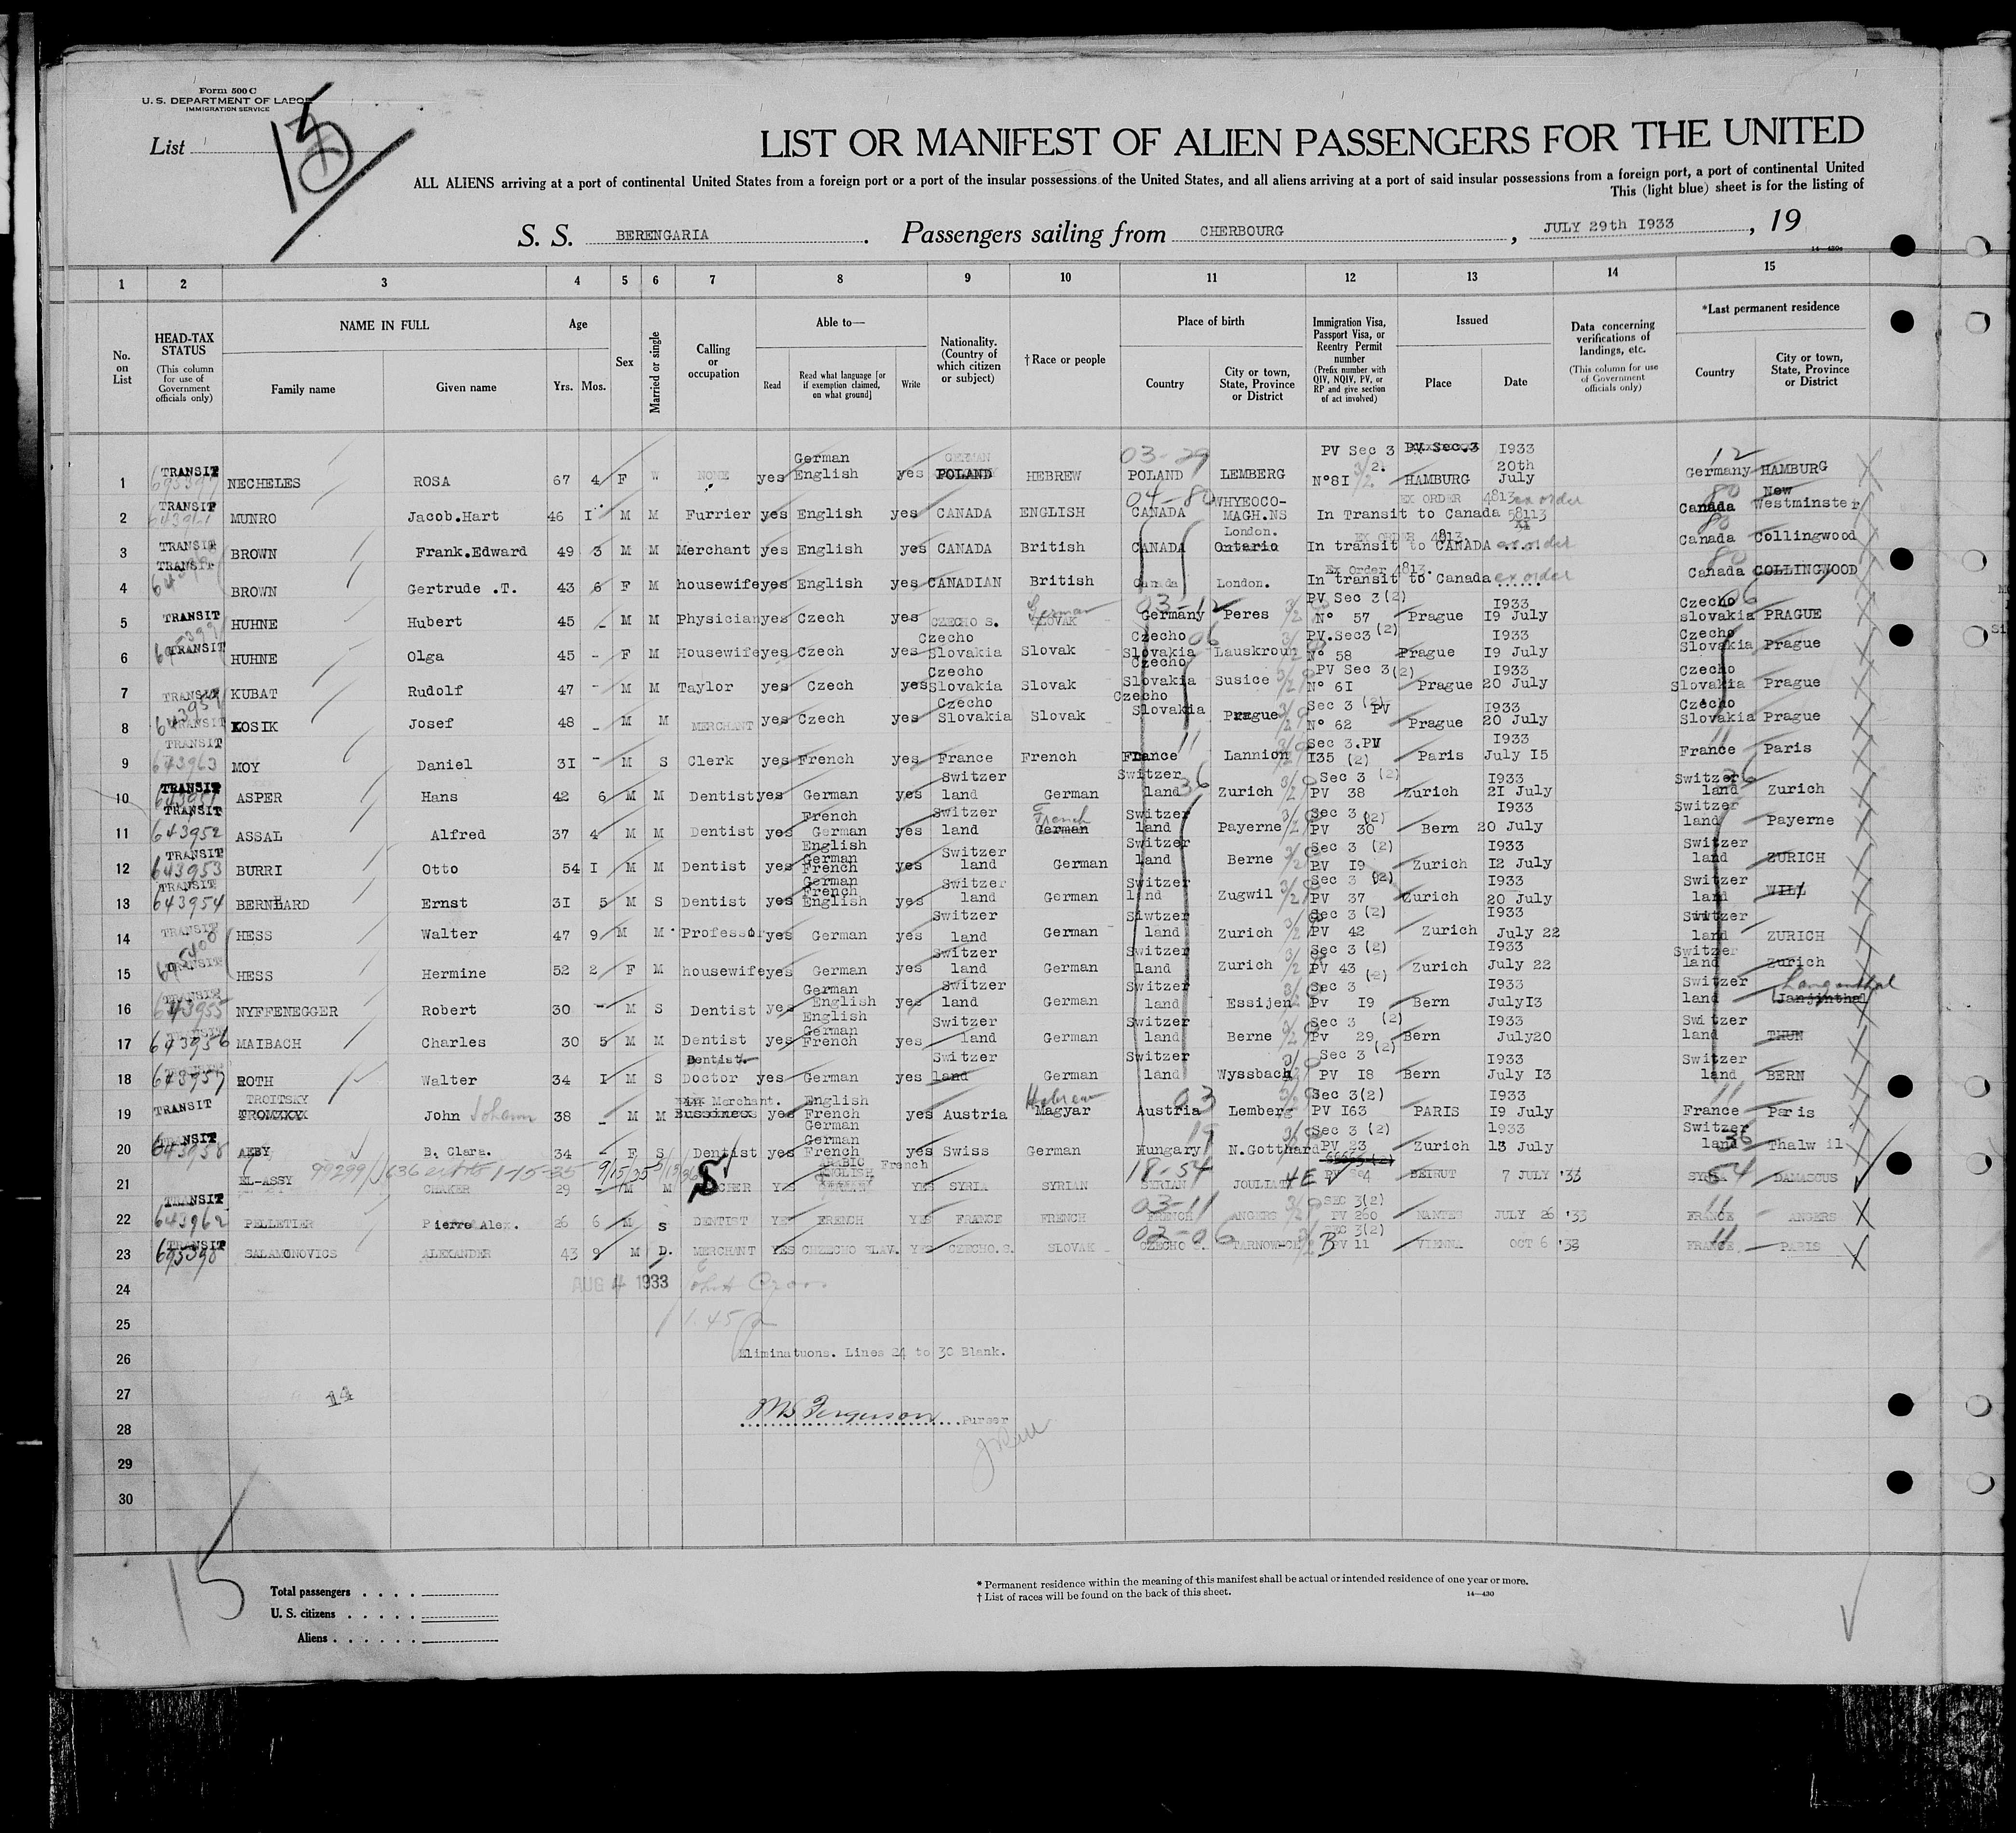 Form 500 C
U. S. DEPARTMENT OF LABOR
IMMIGRATION SERVICE
List 15
LIST OR MANIFEST OF ALIEN PASSENGERS FOR THE UNITED
ALL ALIENS arriving at a port of continental United States from a foreign port or a port of the insular possessions of the United States, and all aliens arriving at a port of said insular possessions from a foreign port, a port of continental United
This (light blue) sheet is for the listing of
S. S. BERENGARIA. Passengers sailing from CHERBOURG, JULY 29th I933, 19
14—430c
1 2 3 4 5 6 7 8 9 10 11 12 13 14 15
No. on List
HEAD-TAX STATUS (This column for use of Government officials only)
NAME IN FULL Family name Given name
Age Yrs. Mos.
Sex
Married or single
Calling or occupation
Able to— Read Read what language [or if exemption claimed, on what ground] Write
Nationality. (Country of which citizen or subject)
†Race or people
Place of birth Country City or town, State, Province or District
Immigration Visa, Passport Visa, or Reentry Permit number (Prefix number with QIV, NQIV, PV, or RP and give section of act involved)
Issued Place Date
Data concerning verifications of landings, etc. (This column for use of Government officials only)
*Last permanent residence Country City or town, State, Province or District
1 TRANSIT NECHELES ROSA 67 4 F W NONE yes German English yes GERMAN POLAND HEBREW 03-29 POLAND LEMBERG PV Sec 3 N°8I PV. Sec. 3 HAMBURG I933 20th July 12 Germany HAMBURG
2 TRANSIT MUNRO Jacob.Hart 46 I M M Furrier yes English yes CANADA ENGLISH 04-80 CANADA WHYEOCO-MAGH.NS EX ORDER 4813 ex order In Transit to Canada 58113 80 Canada New Westminster
3 TRANSIT BROWN Frank.Edward 49 3 M M Merchant yes English yes CANADA British CANADA London. Ontario EX ORDER 4813 In transit to CANADA ex order 80 Canada Collingwood
4 TRANSIT BROWN Gertrude .T. 43 6 F M housewife yes English yes CANADIAN British Canada London. Ex Order 4813. In transit to Canada ex order 80 Canada COLLINGWOOD
5 TRANSIT HUHNE Hubert 45 - M M Physician yes Czech yes CZECHO S. German SLOVAK 03-12 Germany Peres PV Sec 3(2) N° 57 Prague I933 I9 July 06 Czecho slovakia PRAGUE
6 TRANSIT HUHNE Olga 45 - F M Housewife yes Czech yes Czecho Slovakia Slovak Czecho 06 Slovakia Lauskroun PV.Sec3 (2) N° 58 Prague I933 I9 July Czecho Slovakia Prague
7 TRANSIT KUBAT Rudolf 47 - M M Taylor yes Czech yes Czecho Slovakia Slovak Czecho Slovakia Susice PV Sec 3(2) N° 6I Prague I933 20 July Czecho Slovakia Prague
8 TRANSIT 643959 KOSIK Josef 48 - M M MERCHANT yes Czech yes Czecho Slovakia Slovak Czecho Slovakia Prague Sec 3 (2) PV N° 62 Prague I933 20 July Czecho Slovakia Prague
9 TRANSIT 643963 MOY Daniel 3I - M S Clerk yes French yes France French France 11 Lannion Sec 3.PV I35 (2) Paris I933 July I5 11 France Paris
10 TRANSIT 643951 ASPER Hans 42 6 M M Dentist yes German yes Switzer land German Switzer land 36 Zurich Sec 3 (2) PV 38 Zurich I933 2I July Switzer 36 land Zurich
11 TRANSIT 643952 ASSAL Alfred 37 4 M M Dentist yes French German yes Switzer land French German Switzer land Payerne Sec 3 (2) PV 30 Bern I933 20 July Switzer land Payerne
12 TRANSIT 643953 BURRI Otto 54 I M M Dentist yes English German French yes Switzer land German Switzer land Berne Sec 3 (2) PV I9 Zurich I933 I2 July Switzer land ZURICH
13 TRANSIT 643954 BERNHARD Ernst 3I 5 M S Dentist yes German French English yes Switzer land German Switzer land Zugwil Sec 3 (2) PV 37 Zurich I933 20 July Switzer land WILL
14 TRANSIT HESS Walter 47 9 M M Professor yes German yes Switzer land German Siwtzer land Zurich Sec 3 (2) PV 42 Zurich I933 July 22 Switzer land ZURICH
15 TRANSIT HESS Hermine 52 2 F M housewife yes German yes Switzer land German Switzer land Zurich Sec 3 (2) PV 43 Zurich I933 July 22 Switzer land Zurich
16 TRANSIT 643955 NYFFENEGGER Robert 30 - M S Dentist yes German English yes Switzer land German Switzer land Essijen Sec 3 (2) Pv I9 Bern I933 JulyI3 Switzer land Langenthal Janjinthal
17 TRANSIT 643956 MAIBACH Charles 30 5 M M Dentist yes English German French yes Switzer land German Switzer land Berne Sec 3 (2) Pv 29 Bern I933 July20 Switzer land THUN
18 TRANSIT 643957 ROTH Walter 34 I M S Dentist. Doctor yes German yes Switzer land German Switzer land Wyssbach Sec 3 (2) PV I8 Bern I933 July I3 Switzer land BERN
19 TRANSIT TROITSKY John Johann 38 - M M Merchant. Bussiness yes English French German yes Austria Hebrew Magyar Austria 03 Lemberg Sec 3(2) PV I63 PARIS I933 I9 July 11 France Paris
20 TRANSIT 643958 AEBY B. Clara. 34 - F S Dentist yes German French yes Swiss German 19 Hungary N.Gotthard Sec 3 (2) PV 23 Zurich 1933 13 July Switzer land 36 Thalwil
21 EL-ASSY CHAKER 29 - M M YES ARABIC ENGLISH French YES SYRIA SYRIAN 18-54 SYRIAN JOULIAT PV BEIRUT 7 JULY '33 54 SYRIA DAMASCUS
22 TRANSIT 643962 PELLETIER Pierre Alex. 26 6 M S DENTIST YES FRENCH YES FRANCE FRENCH 03-11 FRENCH ANGERS SEC 3(2) PV 260 NANTES JULY 26 '33 11 FRANCE ANGERS
23 TRANSIT 695398 SALAMONOVICS ALEXANDER 43 9 M D. MERCHANT YES CHZECHO SLAV. YES CZECHO.S. SLOVAK 02-06 CZECHO S. SEC 3(2) PV 11 VIENNA OCT 6 11 FRANCE PARIS
24 AUG 4 1933
25 1.45 p
26 Eliminatuons. Lines 24 to 30 Blank.
27 14
28 Ferguson Purser
29
30
15
Total passengers
U. S. citizens
Aliens
* Permanent residence within the meaning of this manifest shall be actual or intended residence of one year or more.
† List of races will be found on the back of this sheet.
14—430